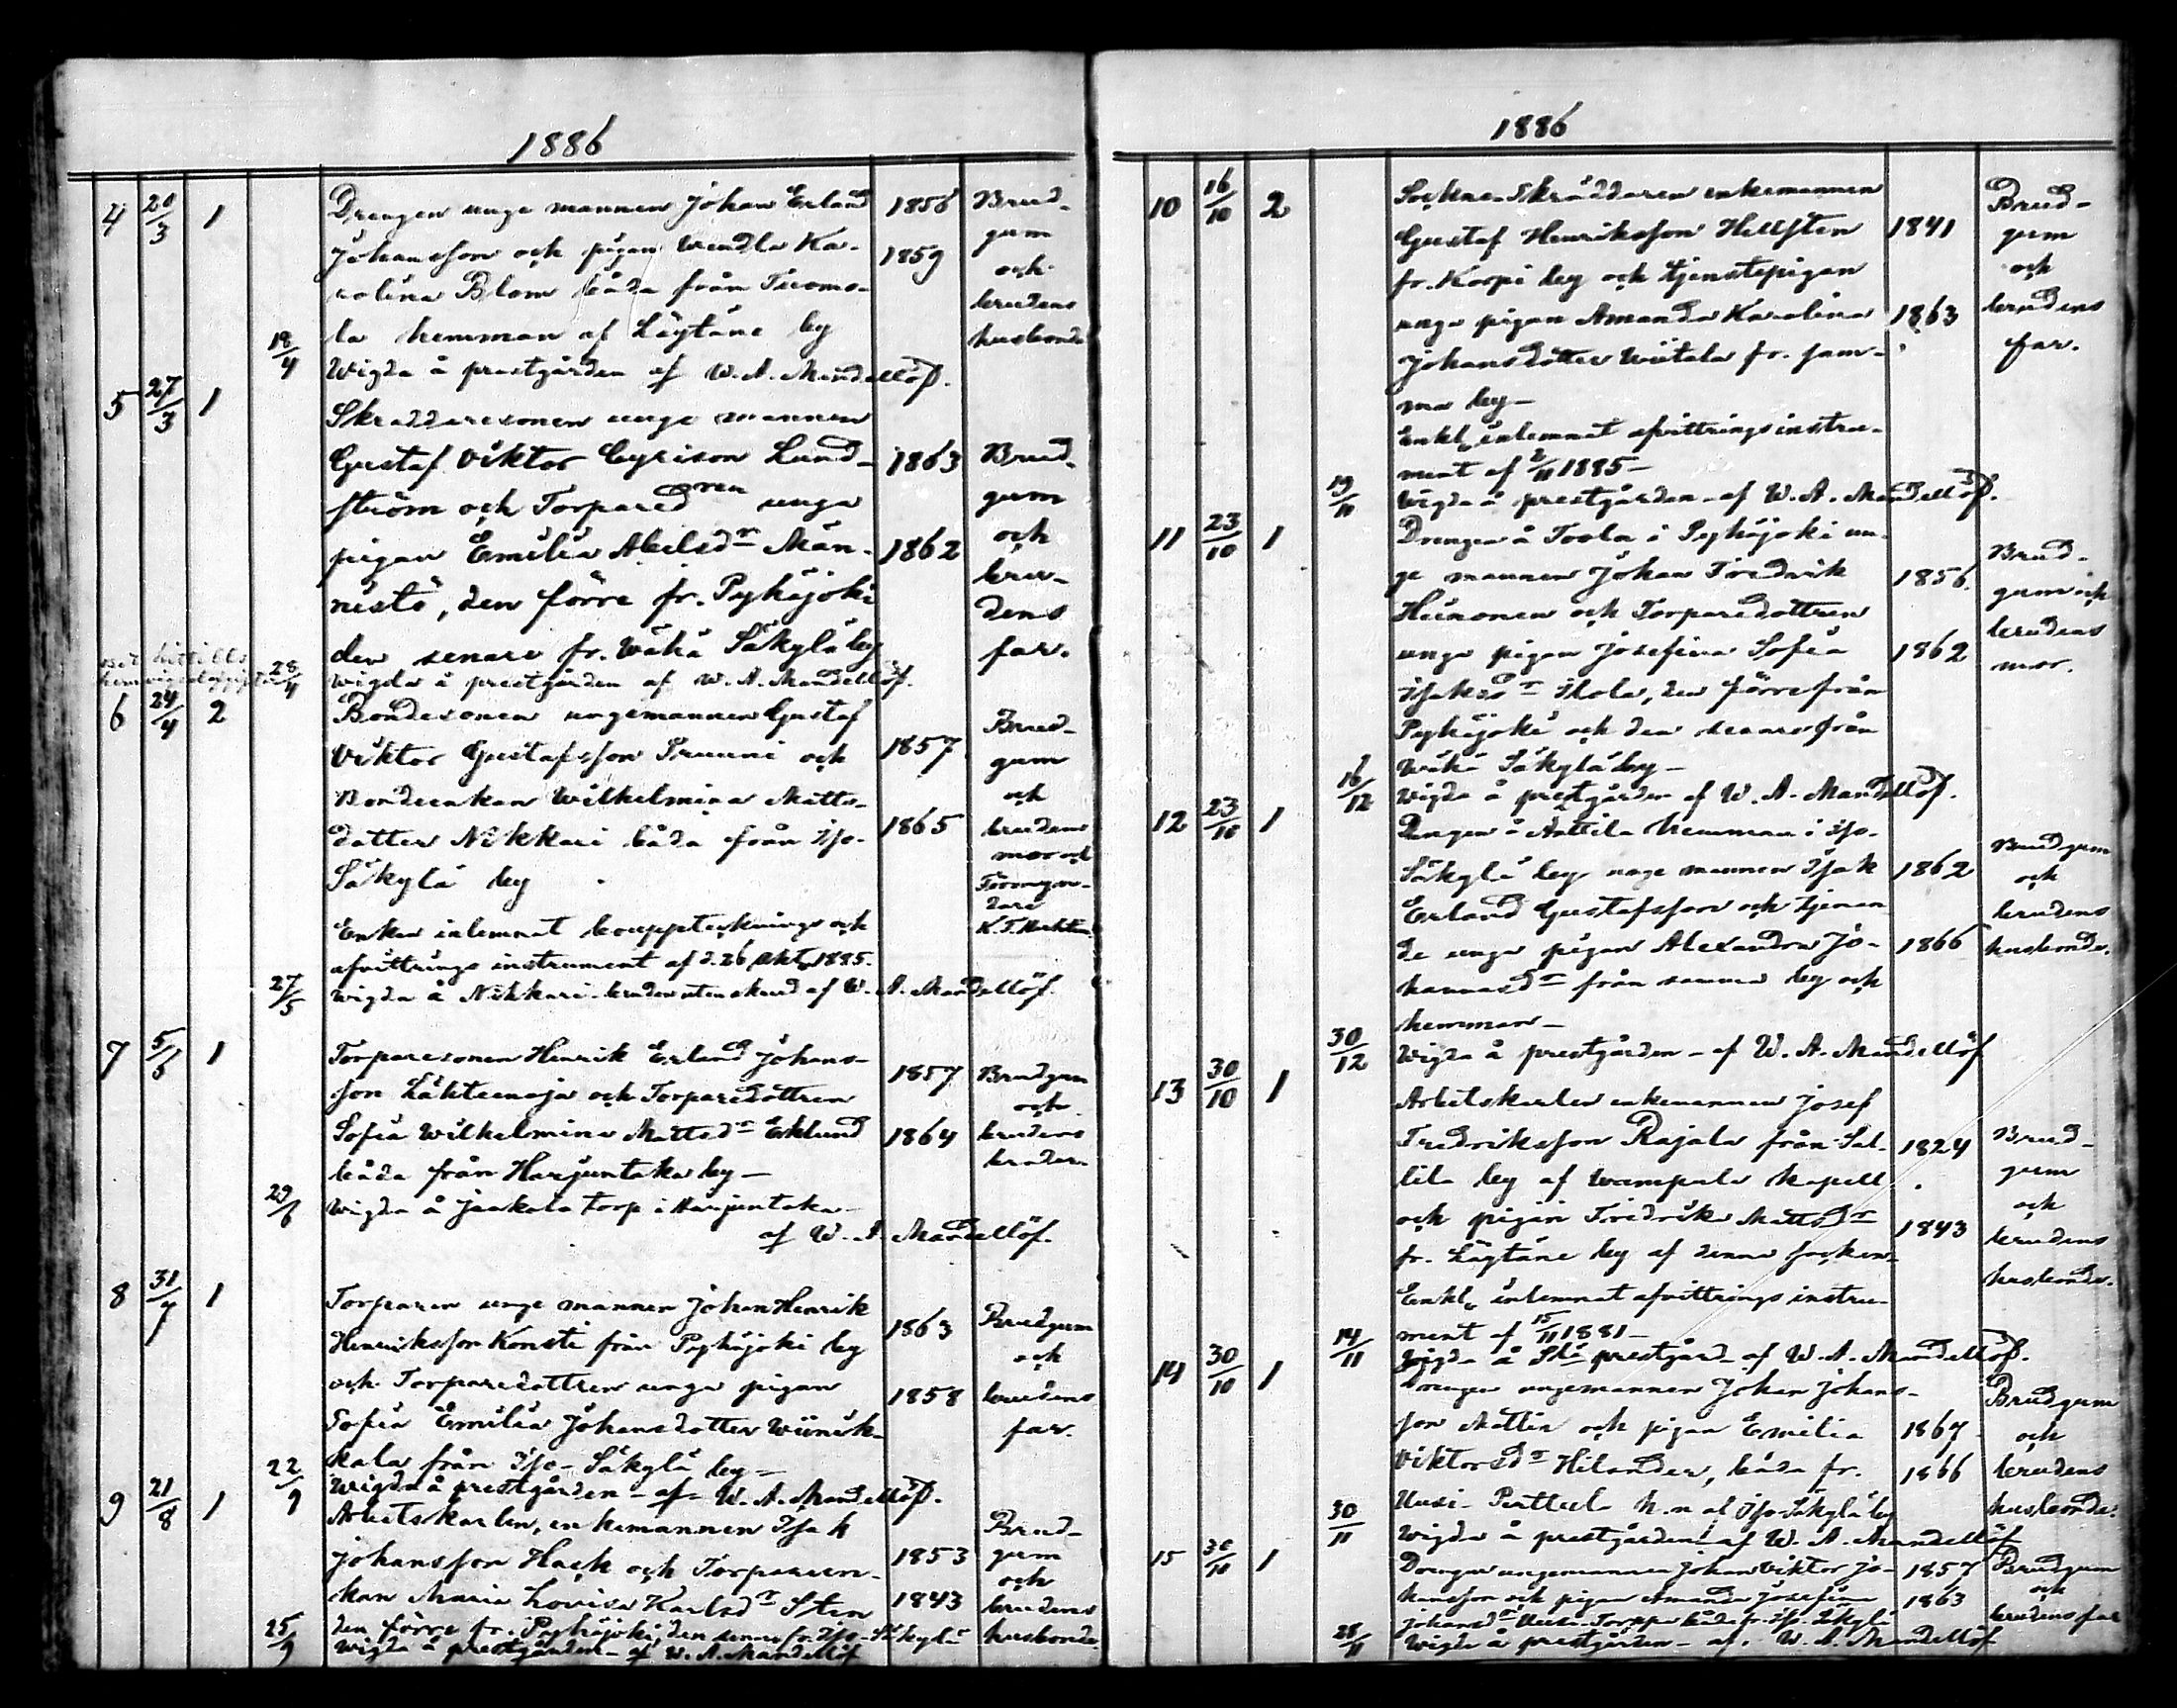 1886
4 20/3 1 Drengen unge mannen Johan Erland 1856 Brud-
Johansson och pigan Wendla Ka- 1859 gum
rolina Blom båda från Tuomo- och
la hemman af Löytäne by brudens
husbonde
18/4 Wigda å prestgården af W. A. Mandellöf.
5 27/3 1 Skraddaresonen unge mannen
Gustaf Viktor Cyrison Lund- 1863 Brud-
ström och Torpared ren unga gum
pigan Emilia Abelsdr Män- 1862 och
nistö, den förre fr. Pyhäjoki bru-
dens
den senare fr. Wähä Säkylä by far.
28/4 Wigda å prestgården af W. A. Mandellöf.
6 24/4 2 Bondesonen ungemannen Gustaf Brud-
Viktor Gustafsson Pruuni och 1857 gum
Bondeenkan Wilhelmina Matts- och
dotter Nikkari båda från Iso- 1865 brudens
Säkylä by mor och
Förmyn-
dare
Enkan inlemnat boupptecknings och
afvittrings instrument af d. 26 Okt. 1885.
27/5 Wigda å Nikkari af W. A. Mandellöf.
7 5/6 1 Torparesonen Henrik Erland Johans-
son Lähteenoja och Torparedottren 1857 Brudgum
och
Sofia Wilhelmina Mattsdr Eklund 1864 brudens
båda från Harjuntaka by — broder.
29/6 Wigda å Jaakola torp i Harjuntaka —
af W. A. Mandellöf.
8 31/7 1 Torparen unge mannen Johan Henrik
Henriksson Konsti från Pyhäjoki by 1863 Brudgum
och
och Torparedottren unga pigan 1858 brudens
Sofia Emilia Johansdotter Wiinik- far.
kala från Iso-Säkylä by —
22/9 Wigda å prestgården — af W. A. Mandellöf.
9 21/8 1 Arbetskarlen, enkemannen Isak Brud-
Johansson Hack och Torpareen- 1853 gum
och
kan Maria Lovisa Karlsdr Sten 1843 brudens
den förre fr. Pyhäjoki, den senare fr. Iso-Säkylä husbonde
25/9 Wigda å prestgården — af W. A. Mandellöf
1886
10 16/10 2 Sockne-Skräddaren enkemannen Brud-
Gustaf Henriksson Hellsten 1841 gum
fr. Korpi by och tjenstepigan och
unga pigan Amanda Karolina 1863 brudens
Johansdotter Wiitala fr. sam- far.
ma by —
Enkl. inlemnat afvittrings instru-
ment af 2/11 1885 —
19/11 Wigda å prestgården — af W. A. Mandellöf.
11 23/10 1 Drengen å Toola i Pyhäjoki un-
ge mannen Johan Fredrik 1856 Brud-
Heinonen och Torparedottren gum och
unga pigan Josefina Sofia 1862 brudens
Isaksdr Skola, den förre från mor.
Pyhäjoki och den senare från
Wähä Säkylä by —
16/12 Wigda å prestgården af W. A. Mandellöf.
12 23/10 1 Drengen å Anttila hemman i Iso-
Säkylä by unge mannen Isak 1862 Brudgum
och
Erland Gustafsson och tjenan- brudens
de unga pigan Alexandra Jo- 1866 husbonde.
hannasdr från samma by och
hemman —
30/12 Wigda å prestgården — af W. A. Mandellöf
13 30/10 1 Arbetskarlen enkemannen Josef
Fredriksson Rajala från Sal- 1824 Brud-
lila by af Wampula kapell gum
och
och pigan Fredrika Mattsdr 1843 brudens
fr. Löytäne by af denna socken husbonde.
Enkl. inlemnat afvittrings instru-
ment af 15/11 1881 —
14/11 Wigda å prestgård — af W. A. Mandellöf.
14 30/10 1 Drengen ungemannen Johan Johans- Brudgum
son Mattila och pigan Emilia 1867 och
Viktorsdr Hilander, båda fr. 1866 brudens
Uusi-Perttula h.n af Iso-Säkylä by husbonde.
30/11 Wigda å prestgården af W. A. Mandellöf
15 30/10 1 Drengen ungemannen Johan Viktor Jo- 1857 Brudgum
hansson och pigan Amanda Josefina 1863 och
Johansdr båda fr. Iso-Säkylä brudens far
28/11 Wigda å prestgården — af W. A. Mandellöf